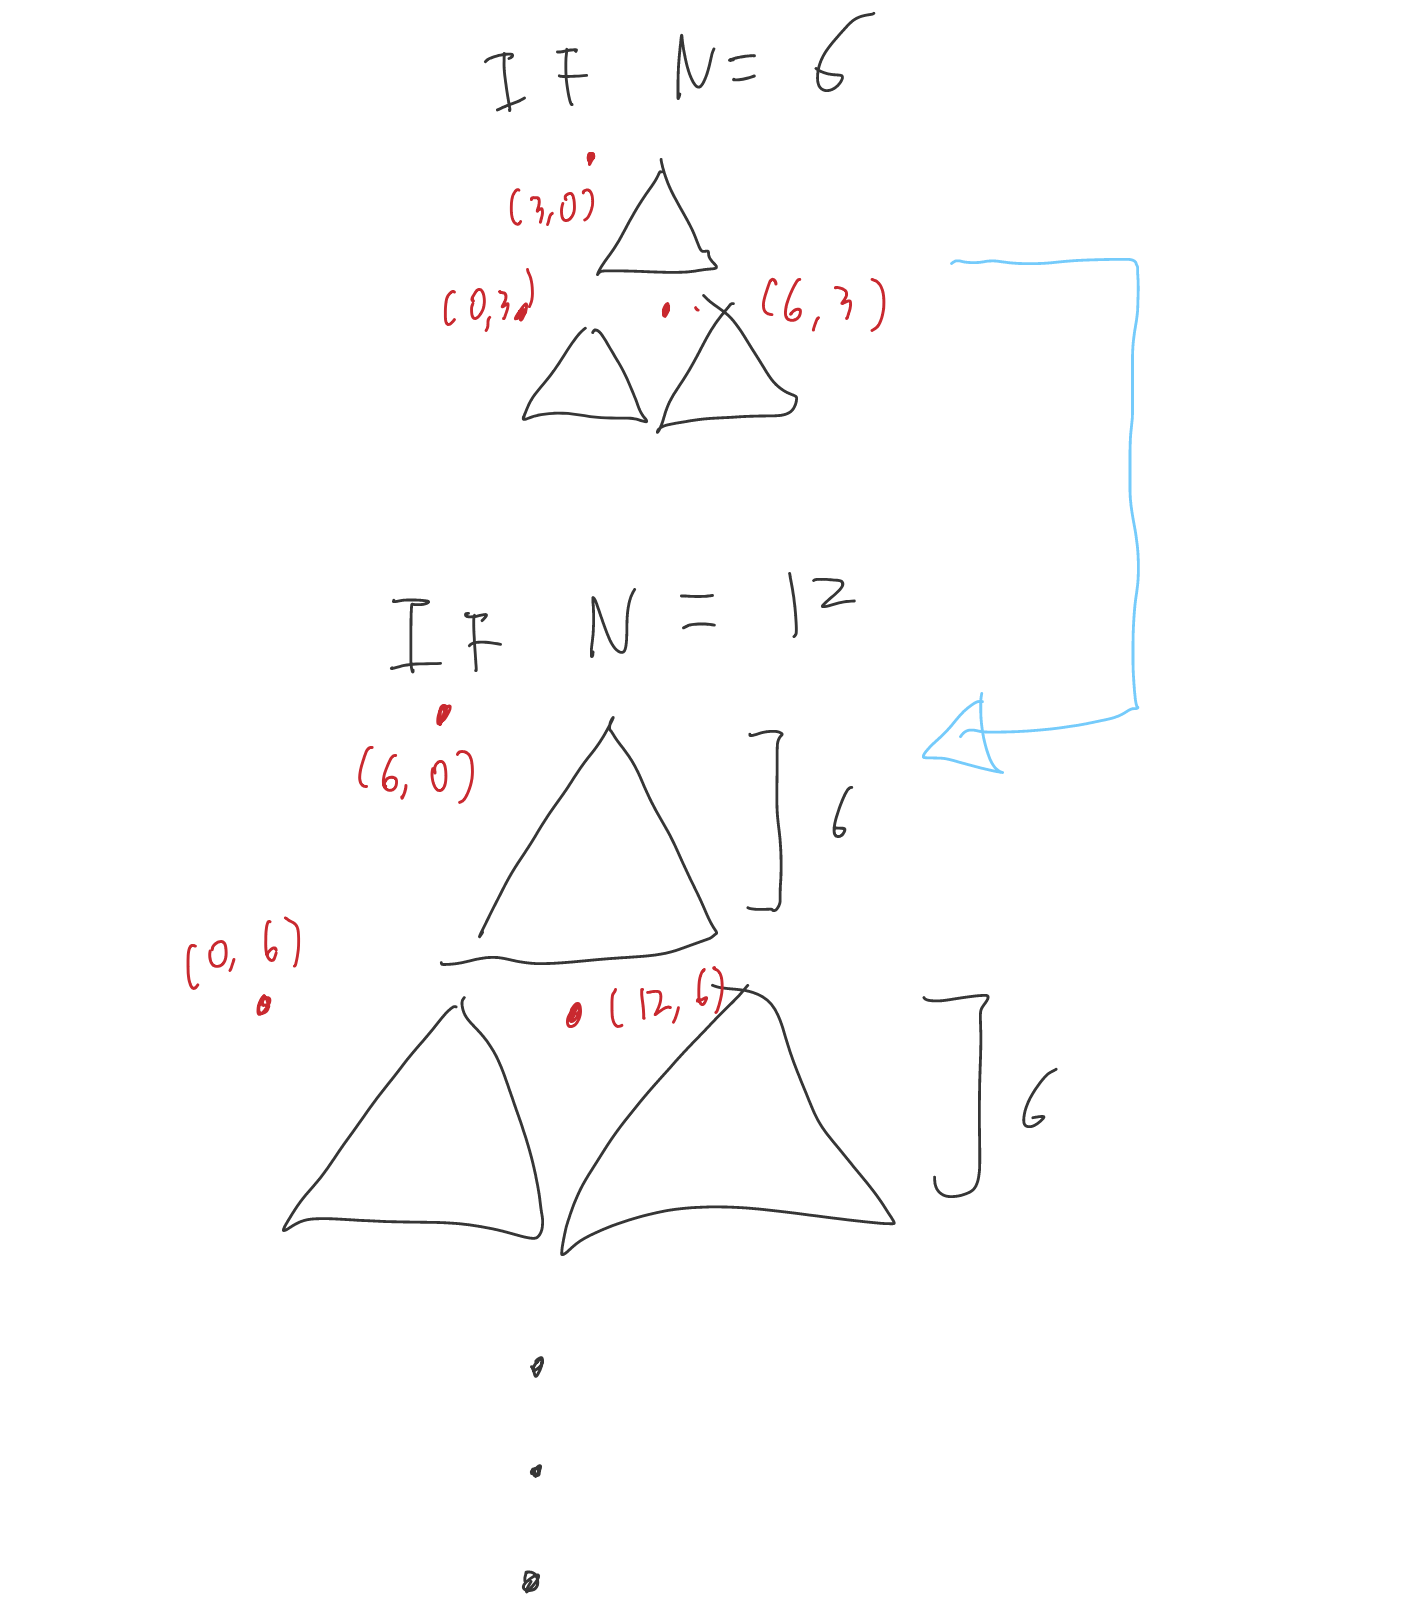 IF N= 6
(3,0)
(0,3)
(6,3)
IF N = 12
(6,0)
6
(0,6)
(12,6)
6